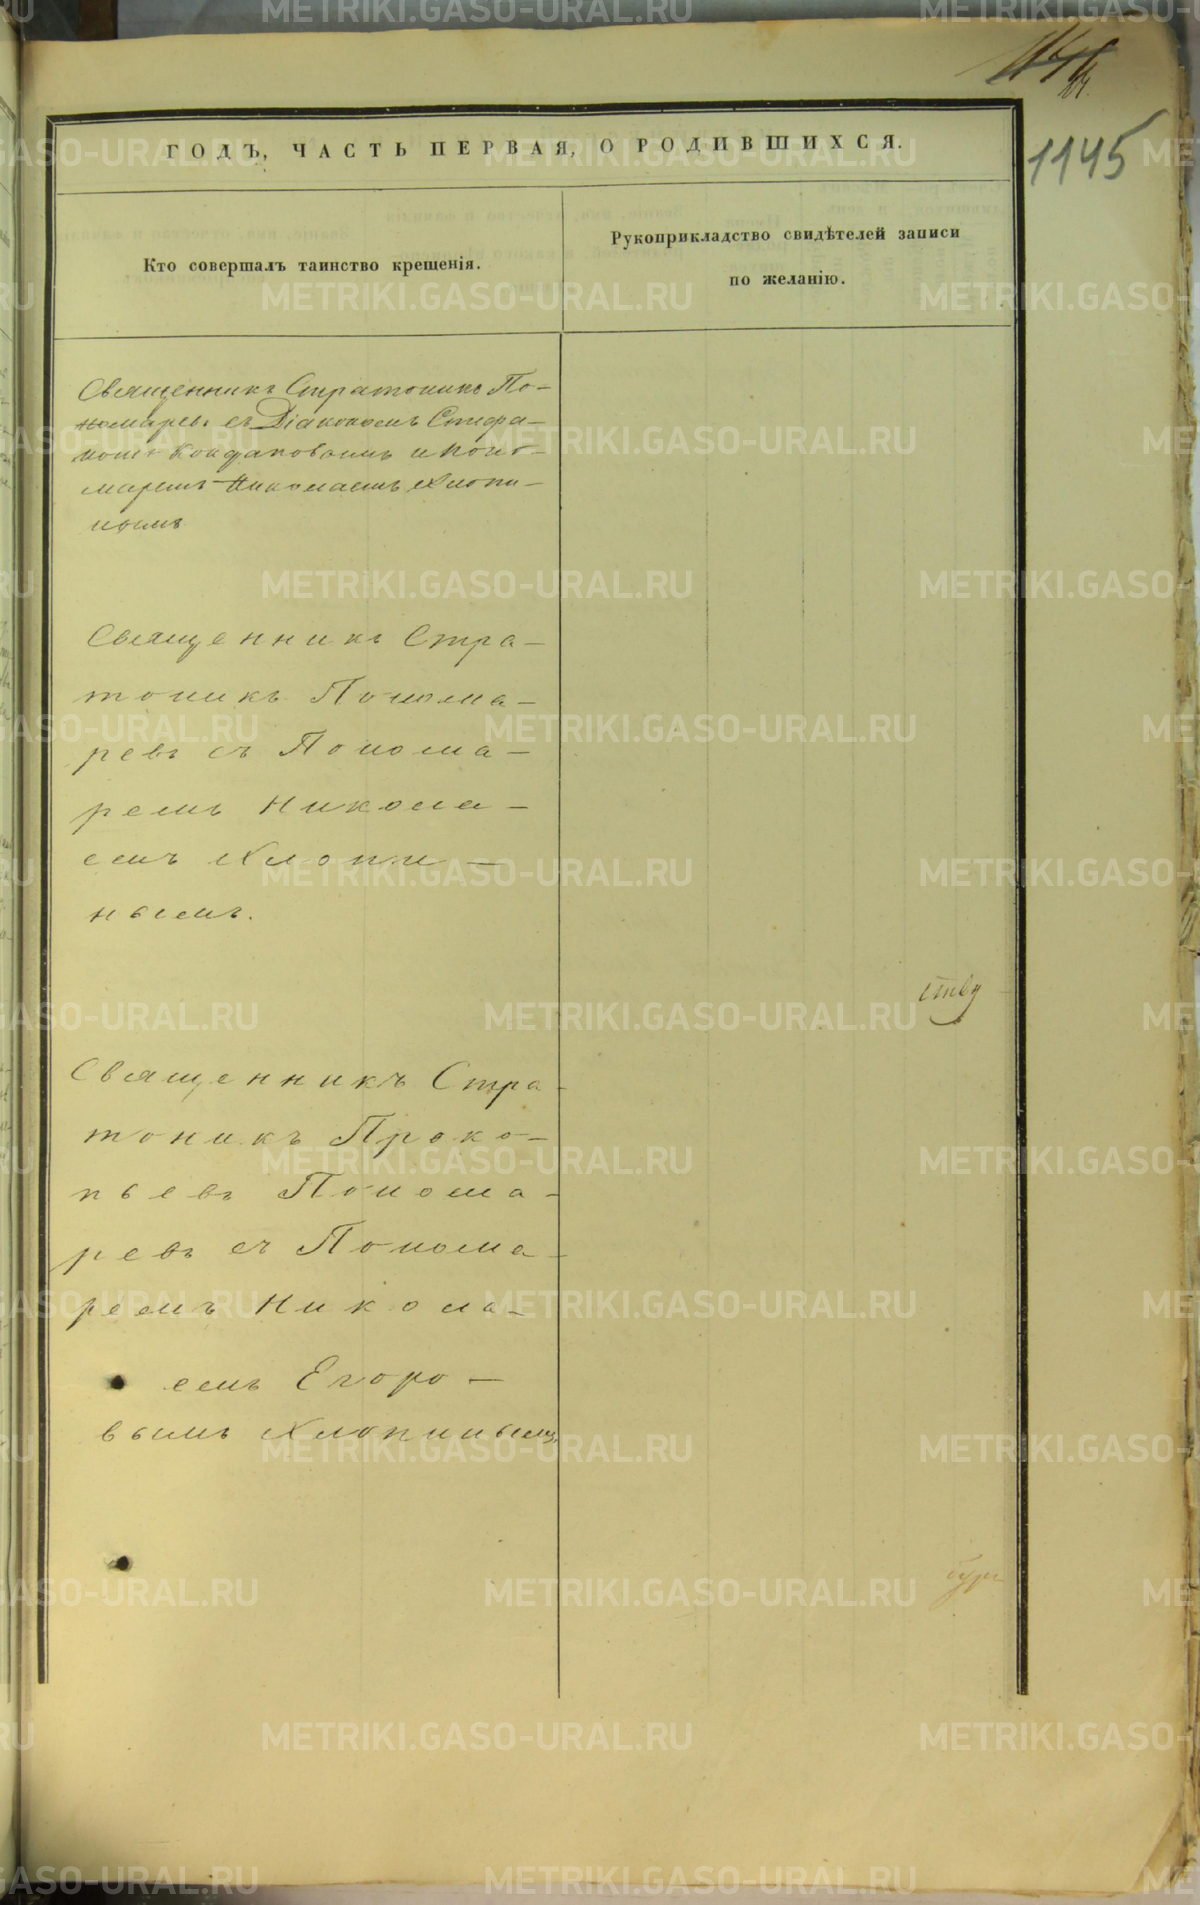 1145
ГОДЪ, ЧАСТЬ ПЕРВАЯ, О РОДИВШИХСЯ.
Кто совершалъ таинство крещенія.
Рукоприкладство свидѣтелей записи
по желанію.
Священникъ Стратоникъ По-
номаревъ съ Діакономъ Стефа-
номъ Кондаковымъ и Поно-
маремъ Николаемъ Хлопи-
нымъ
Священникъ Стра-
тоникъ Понома-
ревъ съ Понома-
ремъ Никола-
емъ Хлопи-
нымъ.
ству
Священникъ Стра-
тоникъ Проко-
пьевъ Понома-
ревъ съ Понома-
ремъ Никола-
емъ Егоро-
вымъ Хлопинымъ
METRIKI.GASO-URAL.RU